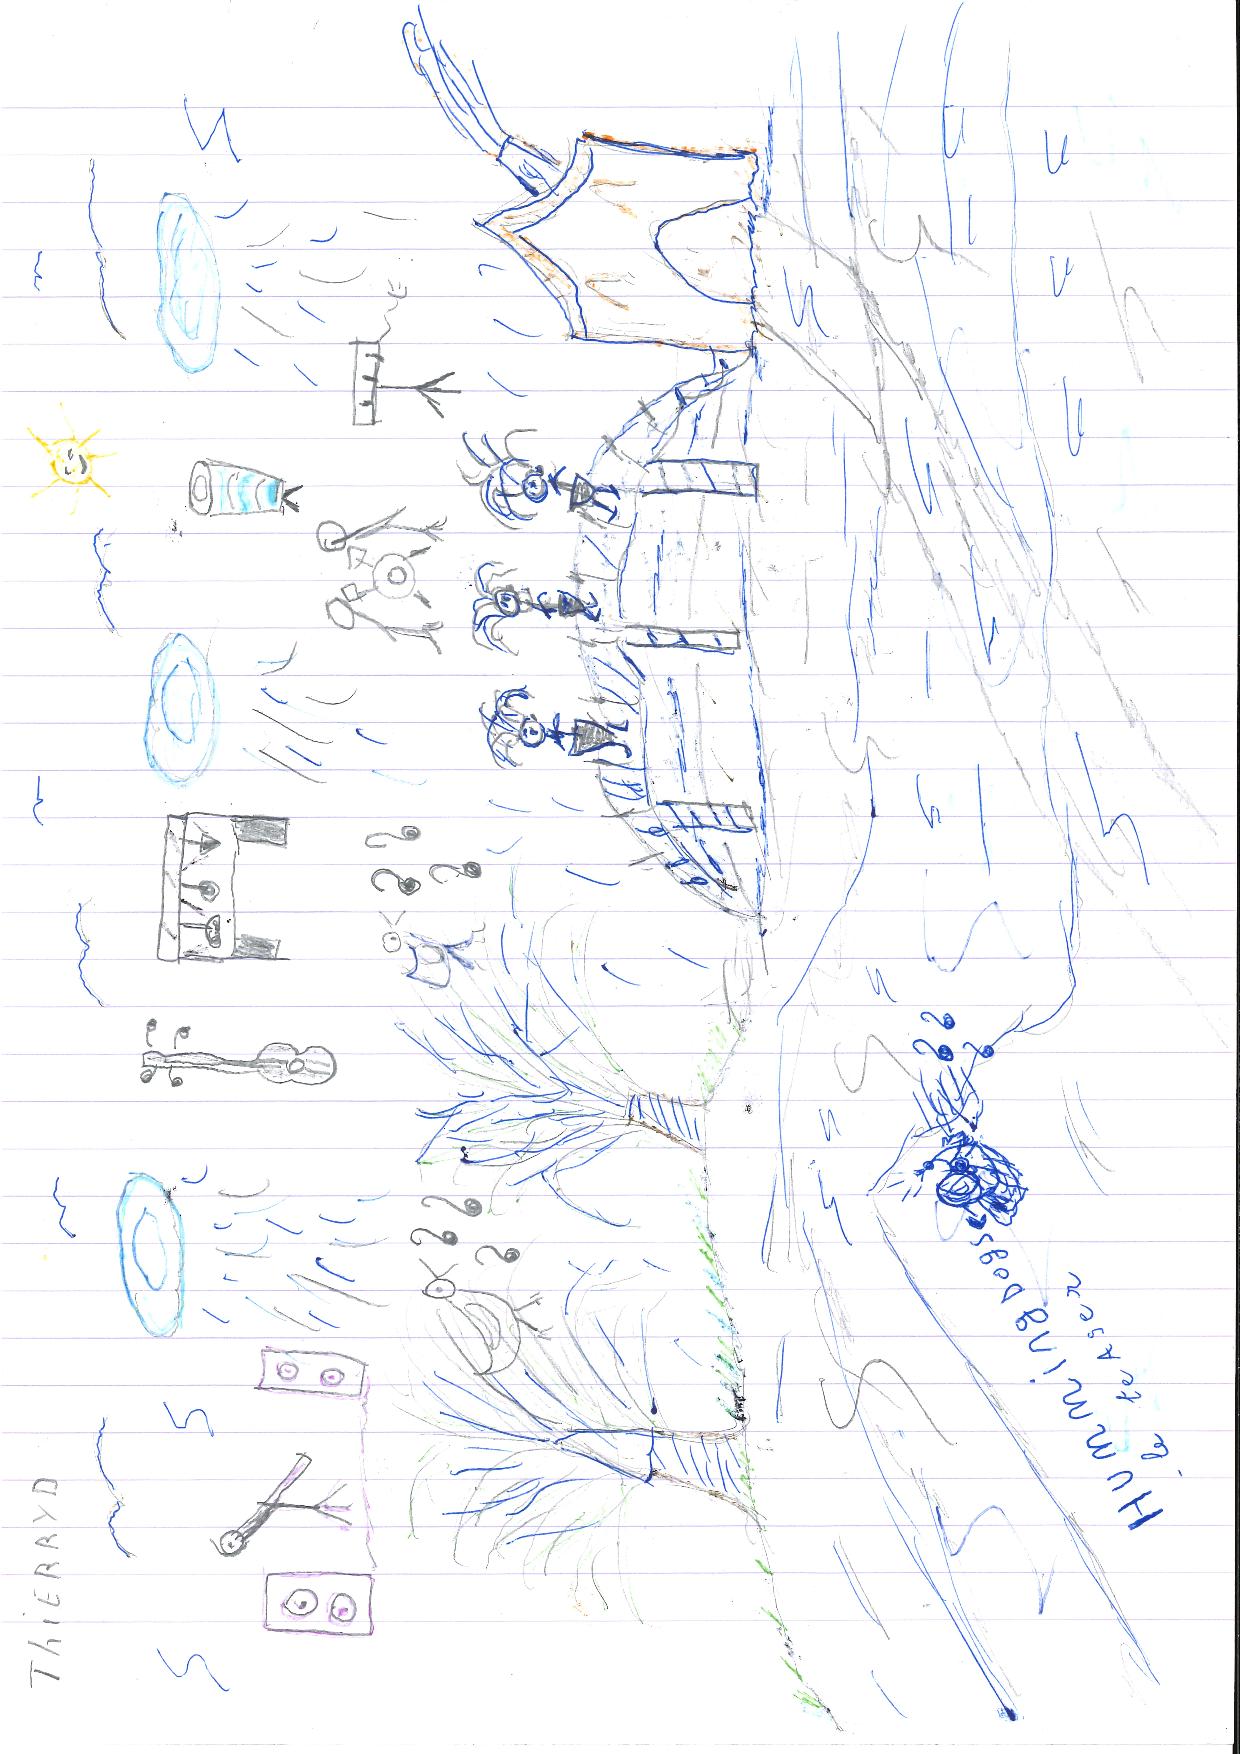 ThiERRYD
HummingDogs
le teAseR